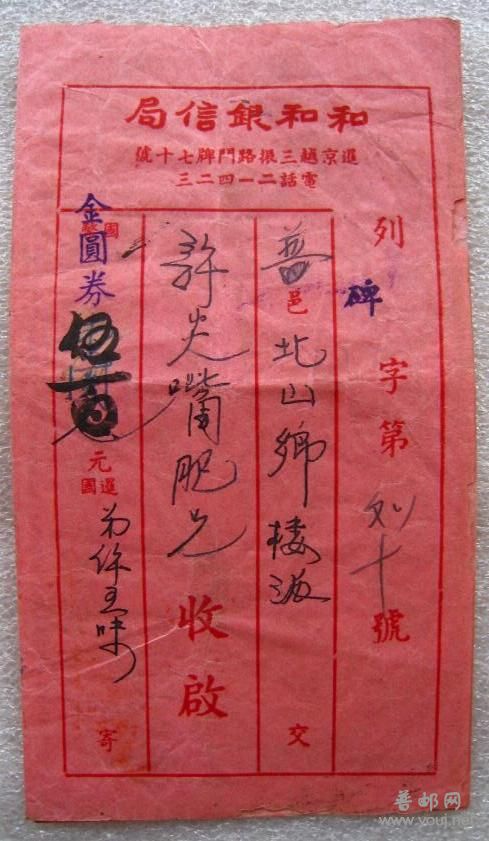 和和銀信局
暹京越三振路門牌七十號
電話二一四二三
列 字第 列十 號
碑
普邑北山鄉樓 交
許炎嘴肥兄 收啟
國幣
金圓券伍百元
暹國 弟 寄
普邮网
www.youj.net